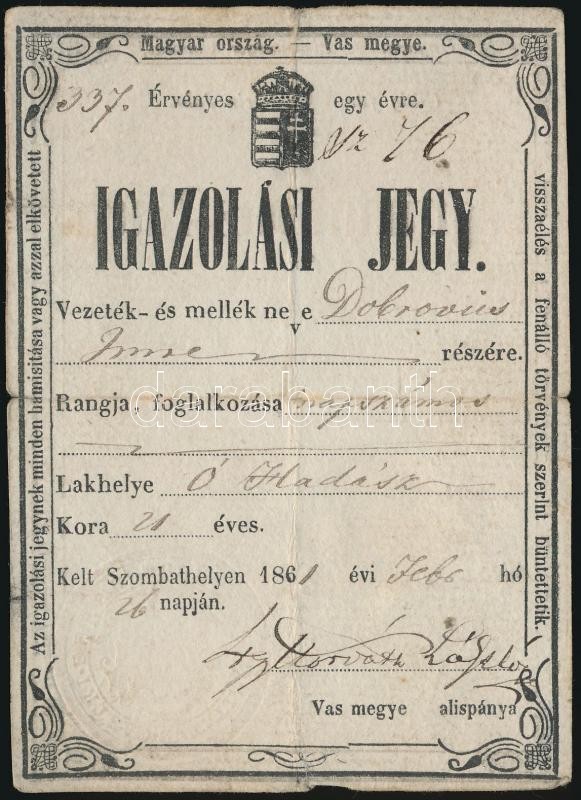 Magyar ország. — Vas megye.
337. Érvényes egy évre.
76
IGAZOLÁSI JEGY.
Vezeték- és mellék ne v e Dobrovics
Imre részére.
Rangja, foglalkozása napszámos
Lakhelye Ó Hadász
Kora 21 éves.
Kelt Szombathelyen 1861 évi Febr hó
26 napján.
Horváth László
Vas megye alispánya
Az igazolási jegynek minden hamisítása vagy azzal elkövetett
visszaélés a fenálló törvények szerint büntettetik.
darabanth